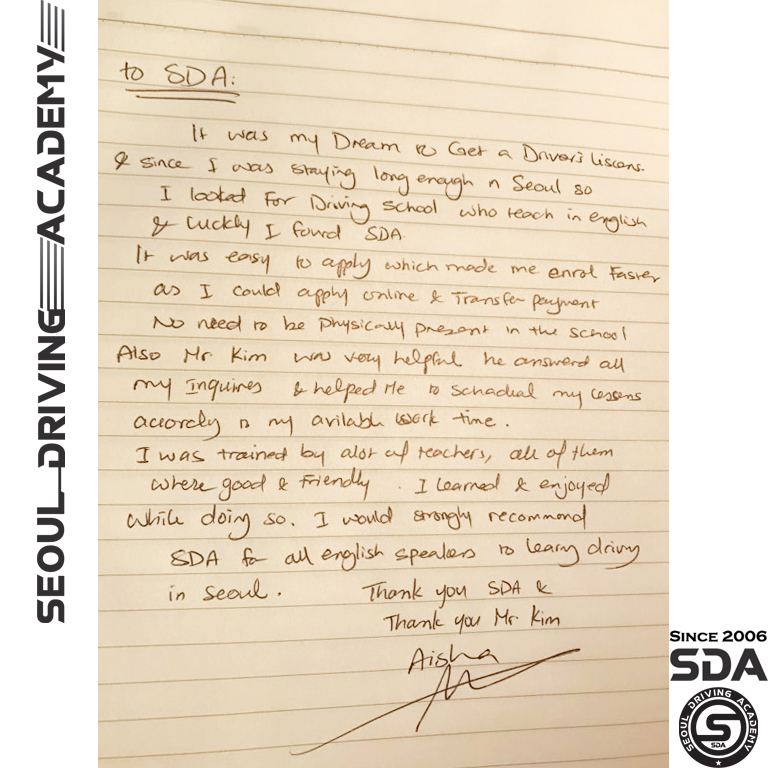 SEOUL DRIVING ACADEMY
to SDA:
It was my Dream to Get a Driver's Liscens.
& since I was staying long enough n Seoul so
I looked For Driving school who teach in english
& Luckly I found SDA.
It was easy to apply which made me enrol Faster
as I could apply online & Transfer payment
No need to be Physically present in the school
Also Mr. Kim was very helpful he answerd all
my Inquires & helped Me to schadual my lessons
accordly to my avilable work time.
I was trained by alot of teachers, all of them
where good & Friendly. I learned & enjoyed
while doing so. I would strongly recommend
SDA for all english speakers to learn driving
in Seoul.
Thank you SDA &
Thank you Mr. Kim
Aisha
SINCE 2006
SDA
SEOUL DRIVING ACADEMY
S
SDA